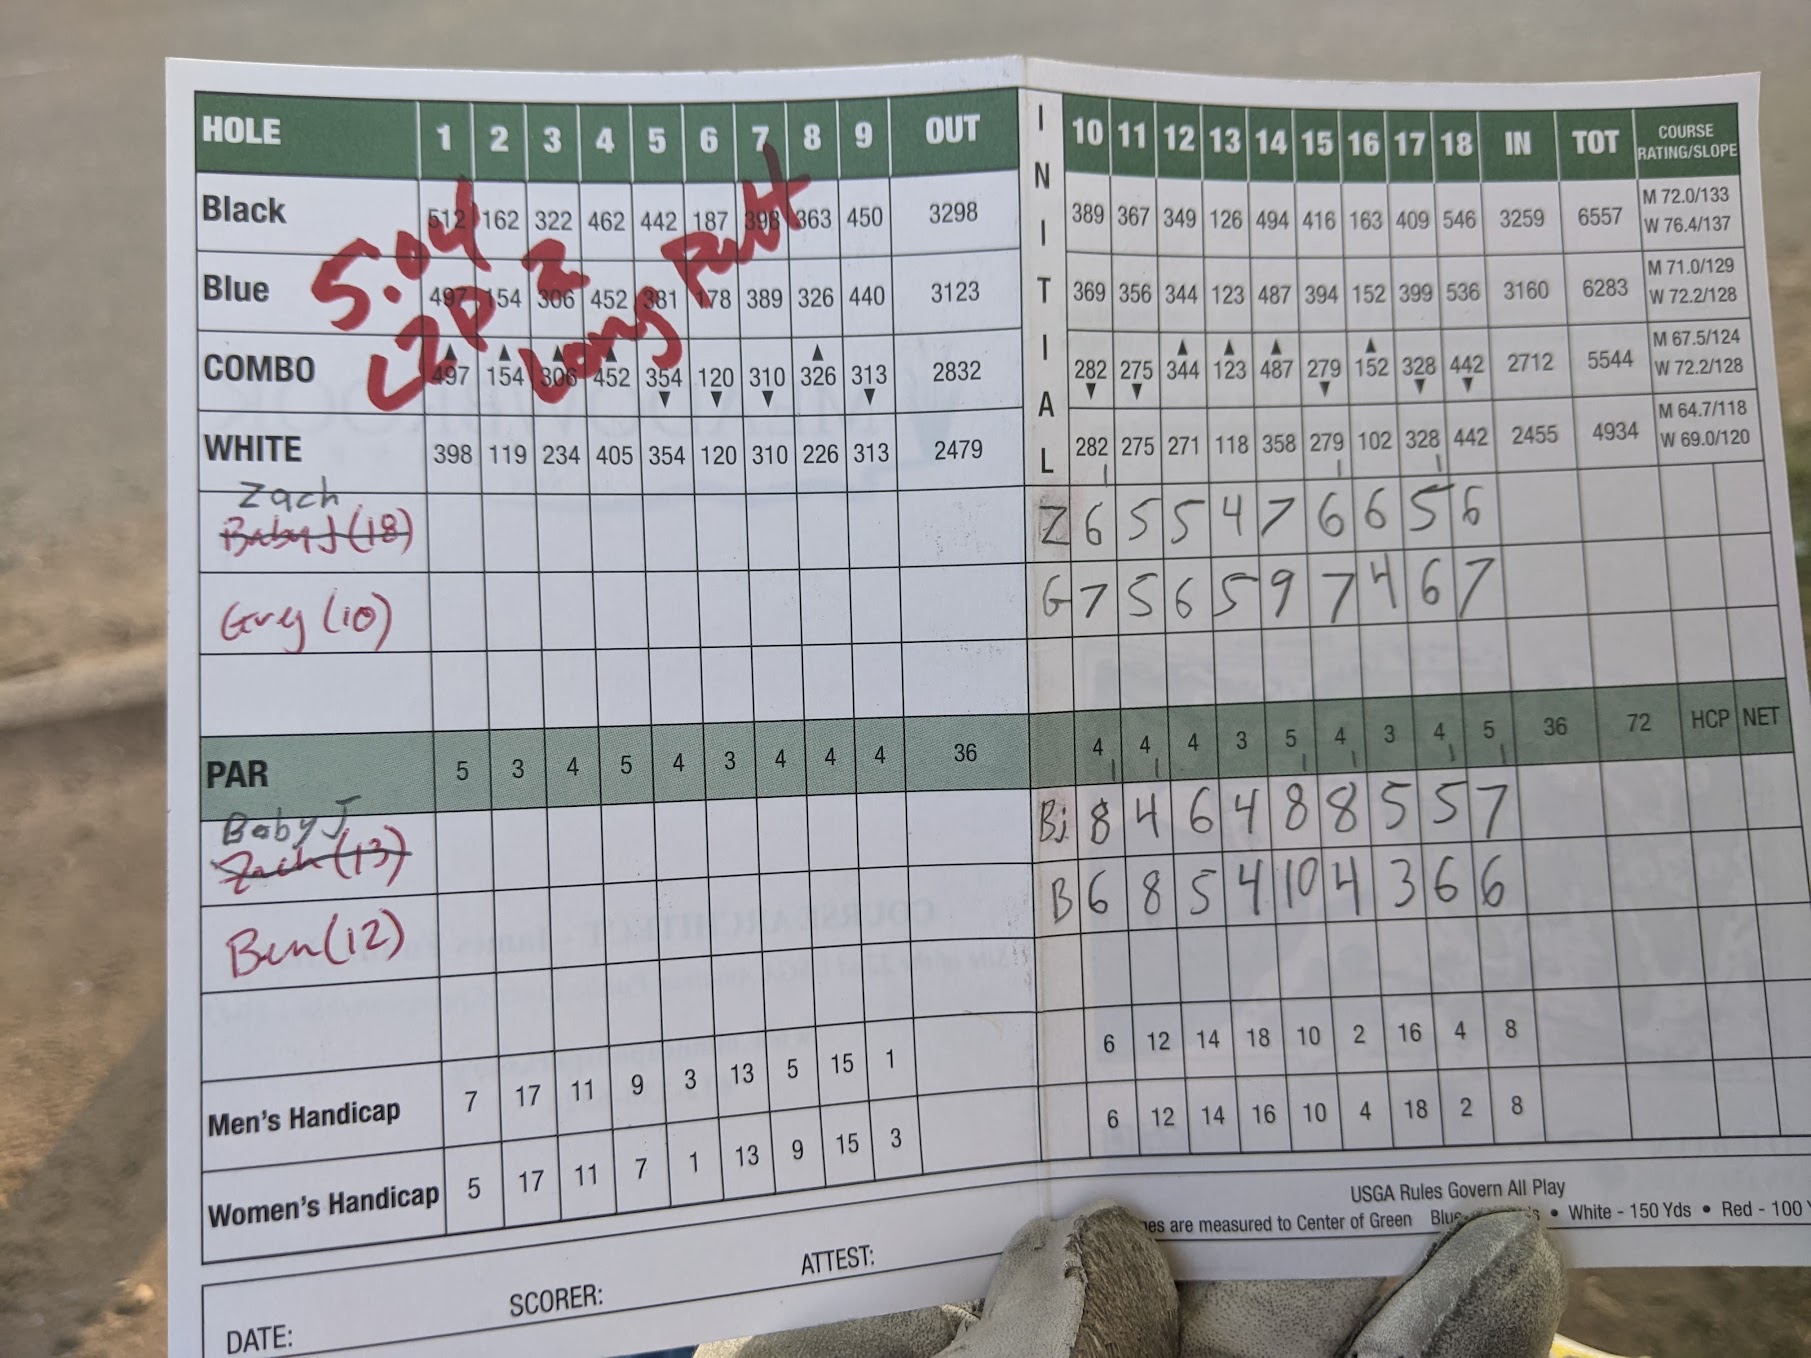 HOLE 1 2 3 4 5 6 7 8 9 OUT INITIAL 10 11 12 13 14 15 16 17 18 IN TOT COURSE RATING/SLOPE
Black 512 162 322 462 442 187 398 363 450 3298 389 367 349 126 494 416 163 409 546 3259 6557 M 72.0/133 W 76.4/137
5.04
Blue 497 154 306 452 381 178 389 326 440 3123 369 356 344 123 487 394 152 399 536 3160 6283 M 71.0/129 W 72.2/128
Long Putt
COMBO 497 154 306 452 354 120 310 326 313 2832 282 275 344 123 487 279 152 328 442 2712 5544 M 67.5/124 W 72.2/128
WHITE 398 119 234 405 354 120 310 226 313 2479 282 275 271 118 358 279 102 328 442 2455 4934 M 64.7/118 W 69.0/120
Zach
Baby J (18) Z 6 5 5 4 7 6 6 5 6
Greg (10) G 7 5 6 5 9 7 4 6 7
PAR 5 3 4 5 4 3 4 4 4 36 4 4 4 3 5 4 3 4 5 36 72 HCP NET
Baby J
Zach (13) Bj 8 4 6 4 8 8 5 5 7
Ben (12) B 6 8 5 4 10 4 3 6 6
Men's Handicap 7 17 11 9 3 13 5 15 1 6 12 14 18 10 2 16 4 8
Women's Handicap 5 17 11 7 1 13 9 15 3 6 12 14 16 10 4 18 2 8
USGA Rules Govern All Play
are measured to Center of Green • White - 150 Yds • Red - 100
DATE: SCORER: ATTEST: